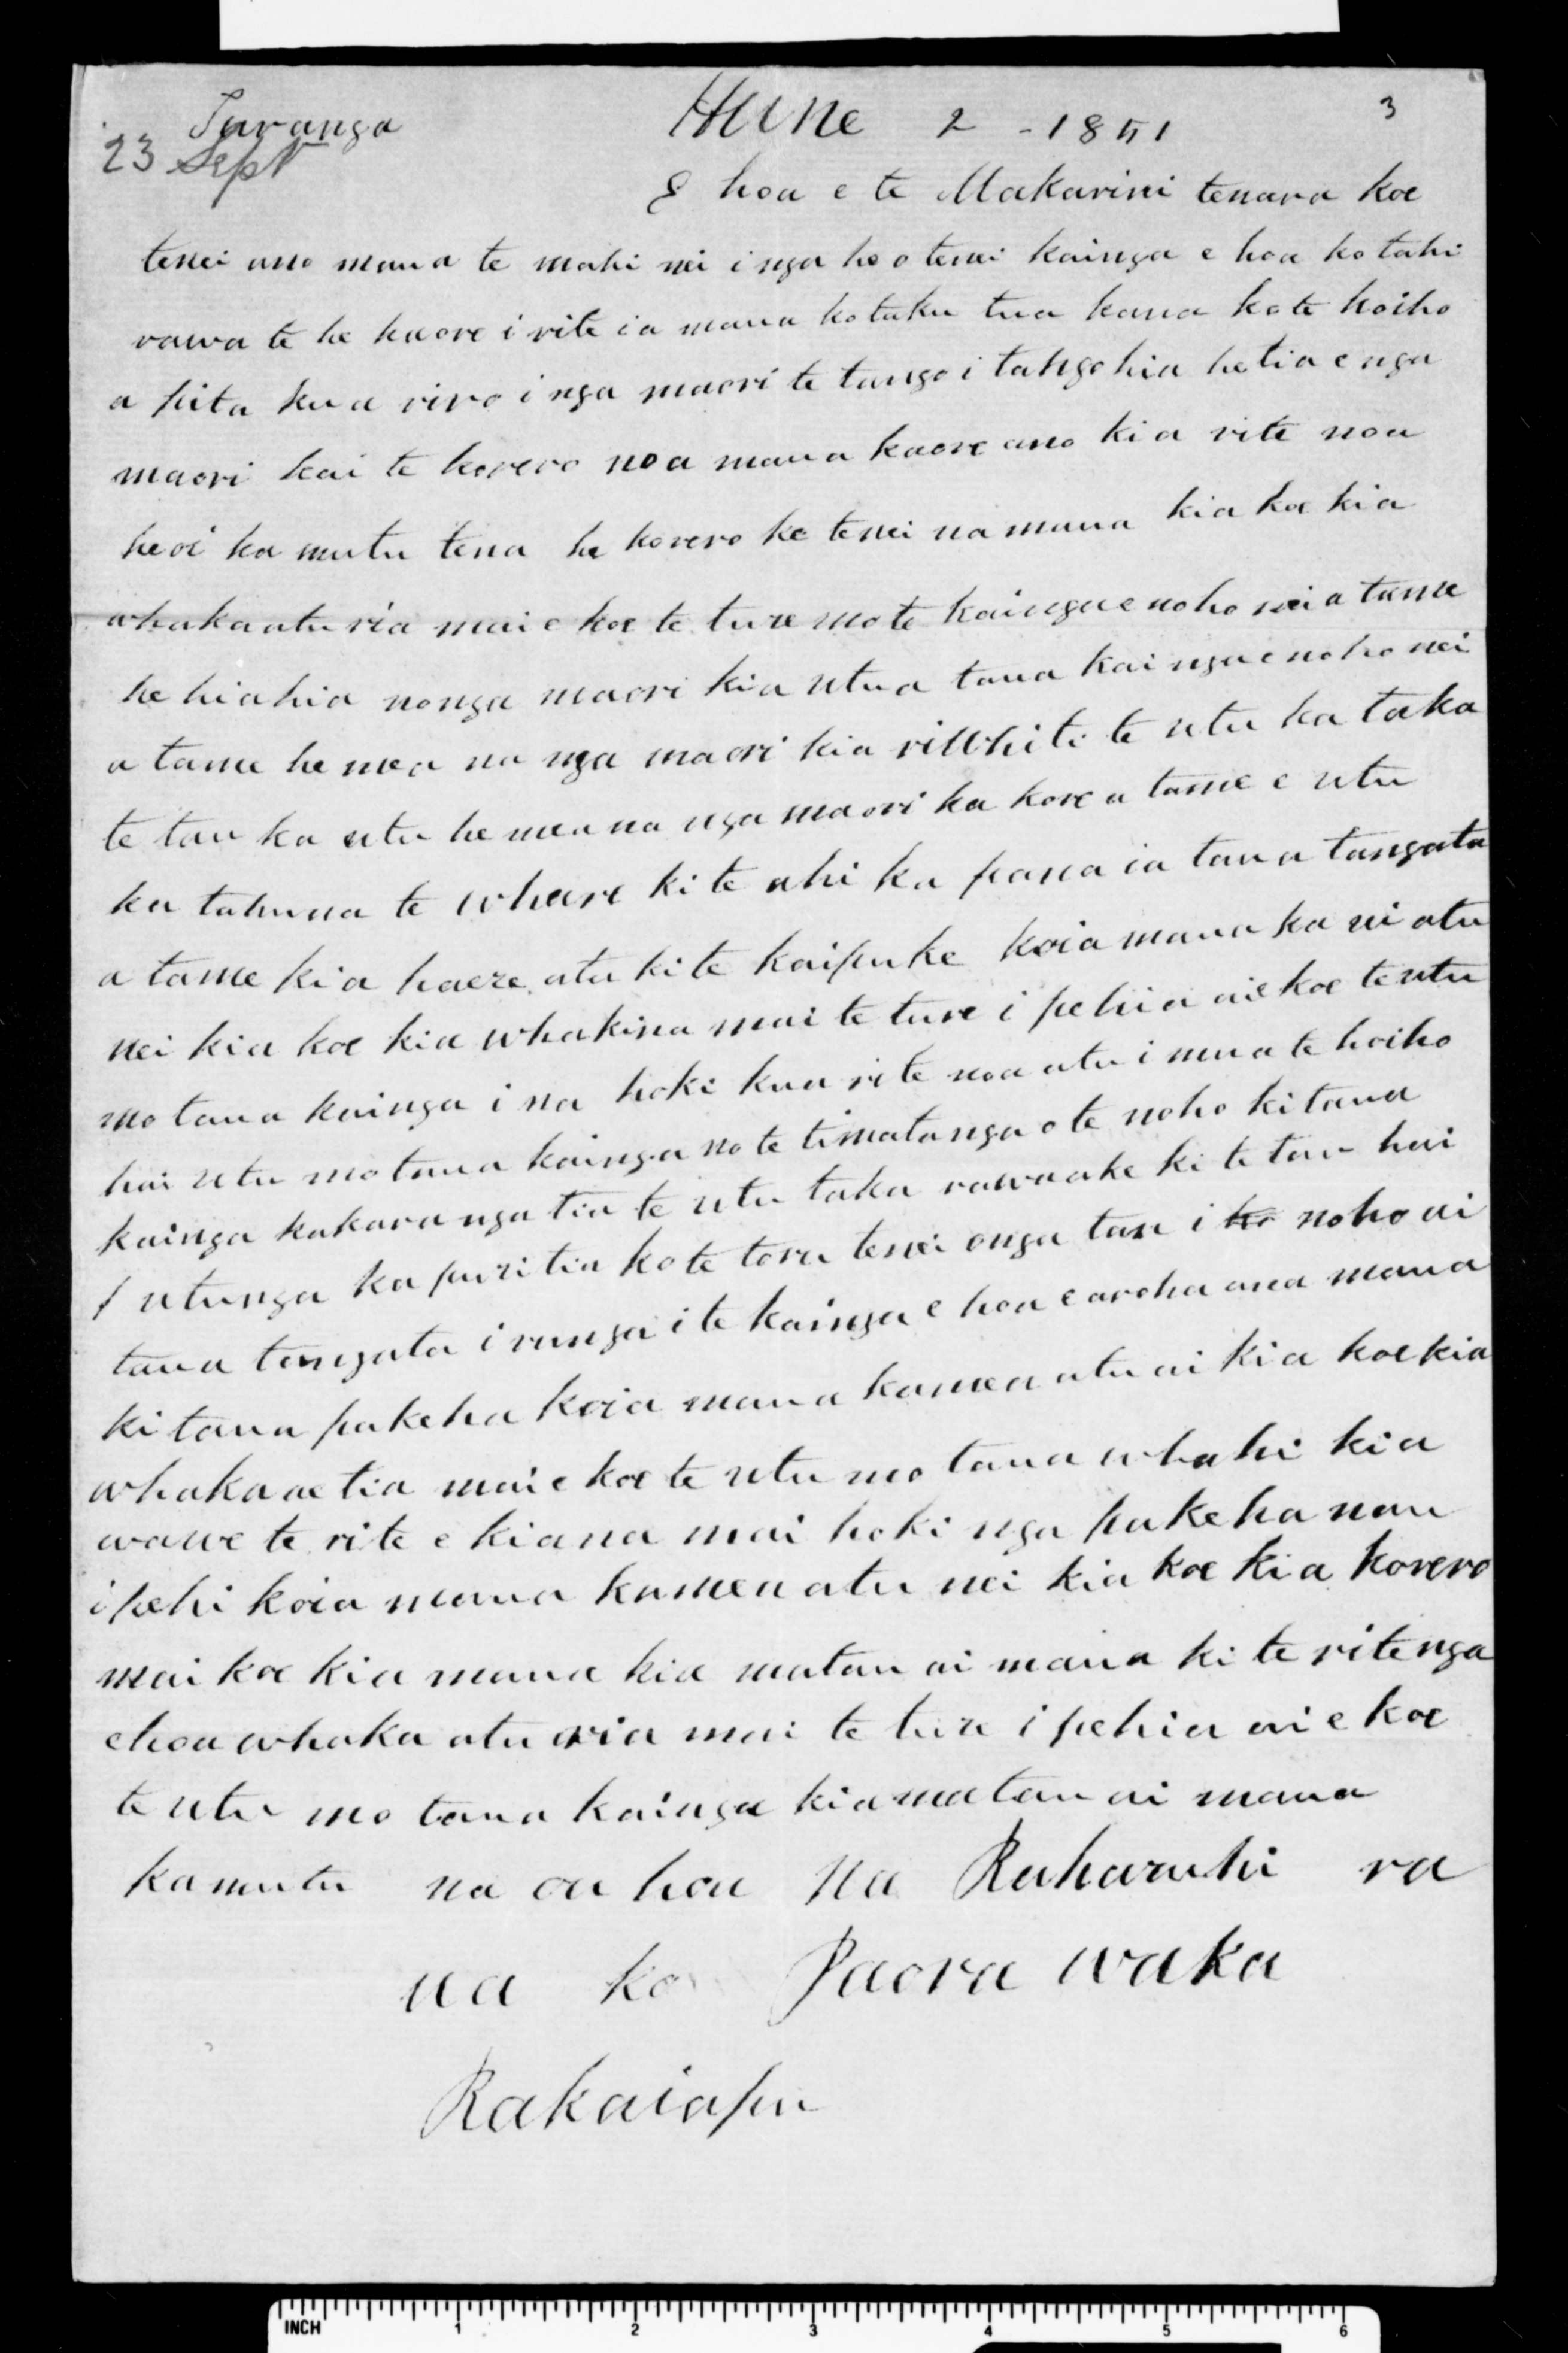 Turanga
23 Sept
Hune 2 - 1851
3
E hoa e te Makarini tenara koe
tenei ano maua te mahi nei i nga he o tenei kainga e hoa ko tahi
rawa te he kaore i rite ia maua ko taku tua kana ko te hoiho
a pita kua riro i nga maori te tango i tangohia hetia e nga
maori kai te korero noa maua kaore ano kia rite noa
heoi ka mutu tena he korero ke tenei na maua kia koe kia
whakaaturia mai e koe te ture mo te kainga e noho nei a tame
he hiahia no nga maori kia utua taua kainga e noho nei
a tame he mea na nga maori kia riwhiti te utu ka taka
te tau ka utu he mea na nga maori ka kore a tame e utu
ka tahuna te whare ki te ahi ka pana ia taua tangata
a tame kia haere atu ki te kaipuke koia maua ka mi atu
nei kia koe kia whakina mai te ture i pehia ai e koe te utu
mo taua kainga i na hoki kua rite noa atu i mua te hoiho
hai utu mo taua kainga no te timatanga o te noho ki taua
kainga ka karangatia te utu taka rawa ake ki te tau hai
utunga ka puritia ko te toru tenei o nga tau i noho ai
taua tangata i runga i te kainga e hoa e aroha ana maua
ki taua pakeha koia maua ka mea atu ai kia koe kia
whakaaetia mai e koe te utu mo taua whahi kia
wawe te rite e kiana mai hoki nga pakeha nau
i pehi koia maua ka mea atu nei kia koe kia korero
mai koe kia maua kia matau ai maua ki te ritenga
ehoa whakaaturia mai te ture i pehia ai e koe
te utu mo taua kainga kia matau ai maua
ka mutu na ou hoa Na Raharuhi ra
na ko Paora waka
Rakaiapu